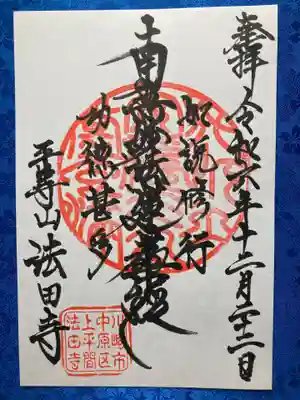 奉拝
令和六年十二月二十二日
如説修行
南無妙法蓮華経
功徳甚多
平等山 法田寺
川崎市
中原区
上平間
法田寺